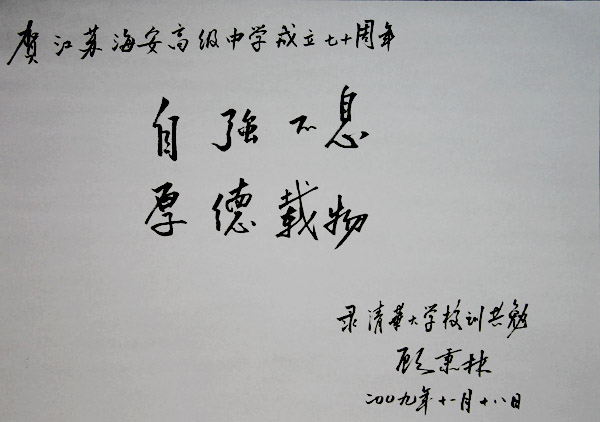 贺江苏海安高级中学成立七十周年
自強不息
厚德载物
录清華大学校训共勉
顾秉林
二〇〇九年十一月十八日